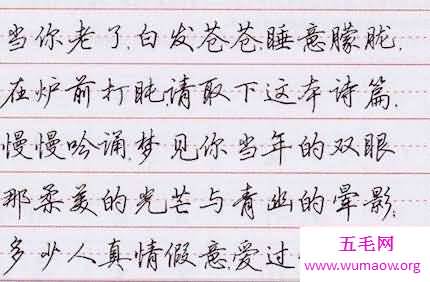 当你老了,白发苍苍,睡意朦胧,
在炉前打盹,请取下这本诗篇,
慢慢吟诵,梦见你当年的双眼
那柔美的光芒与青幽的晕影,
多少人真情假意,爱过
五毛网
www.wumaow.org